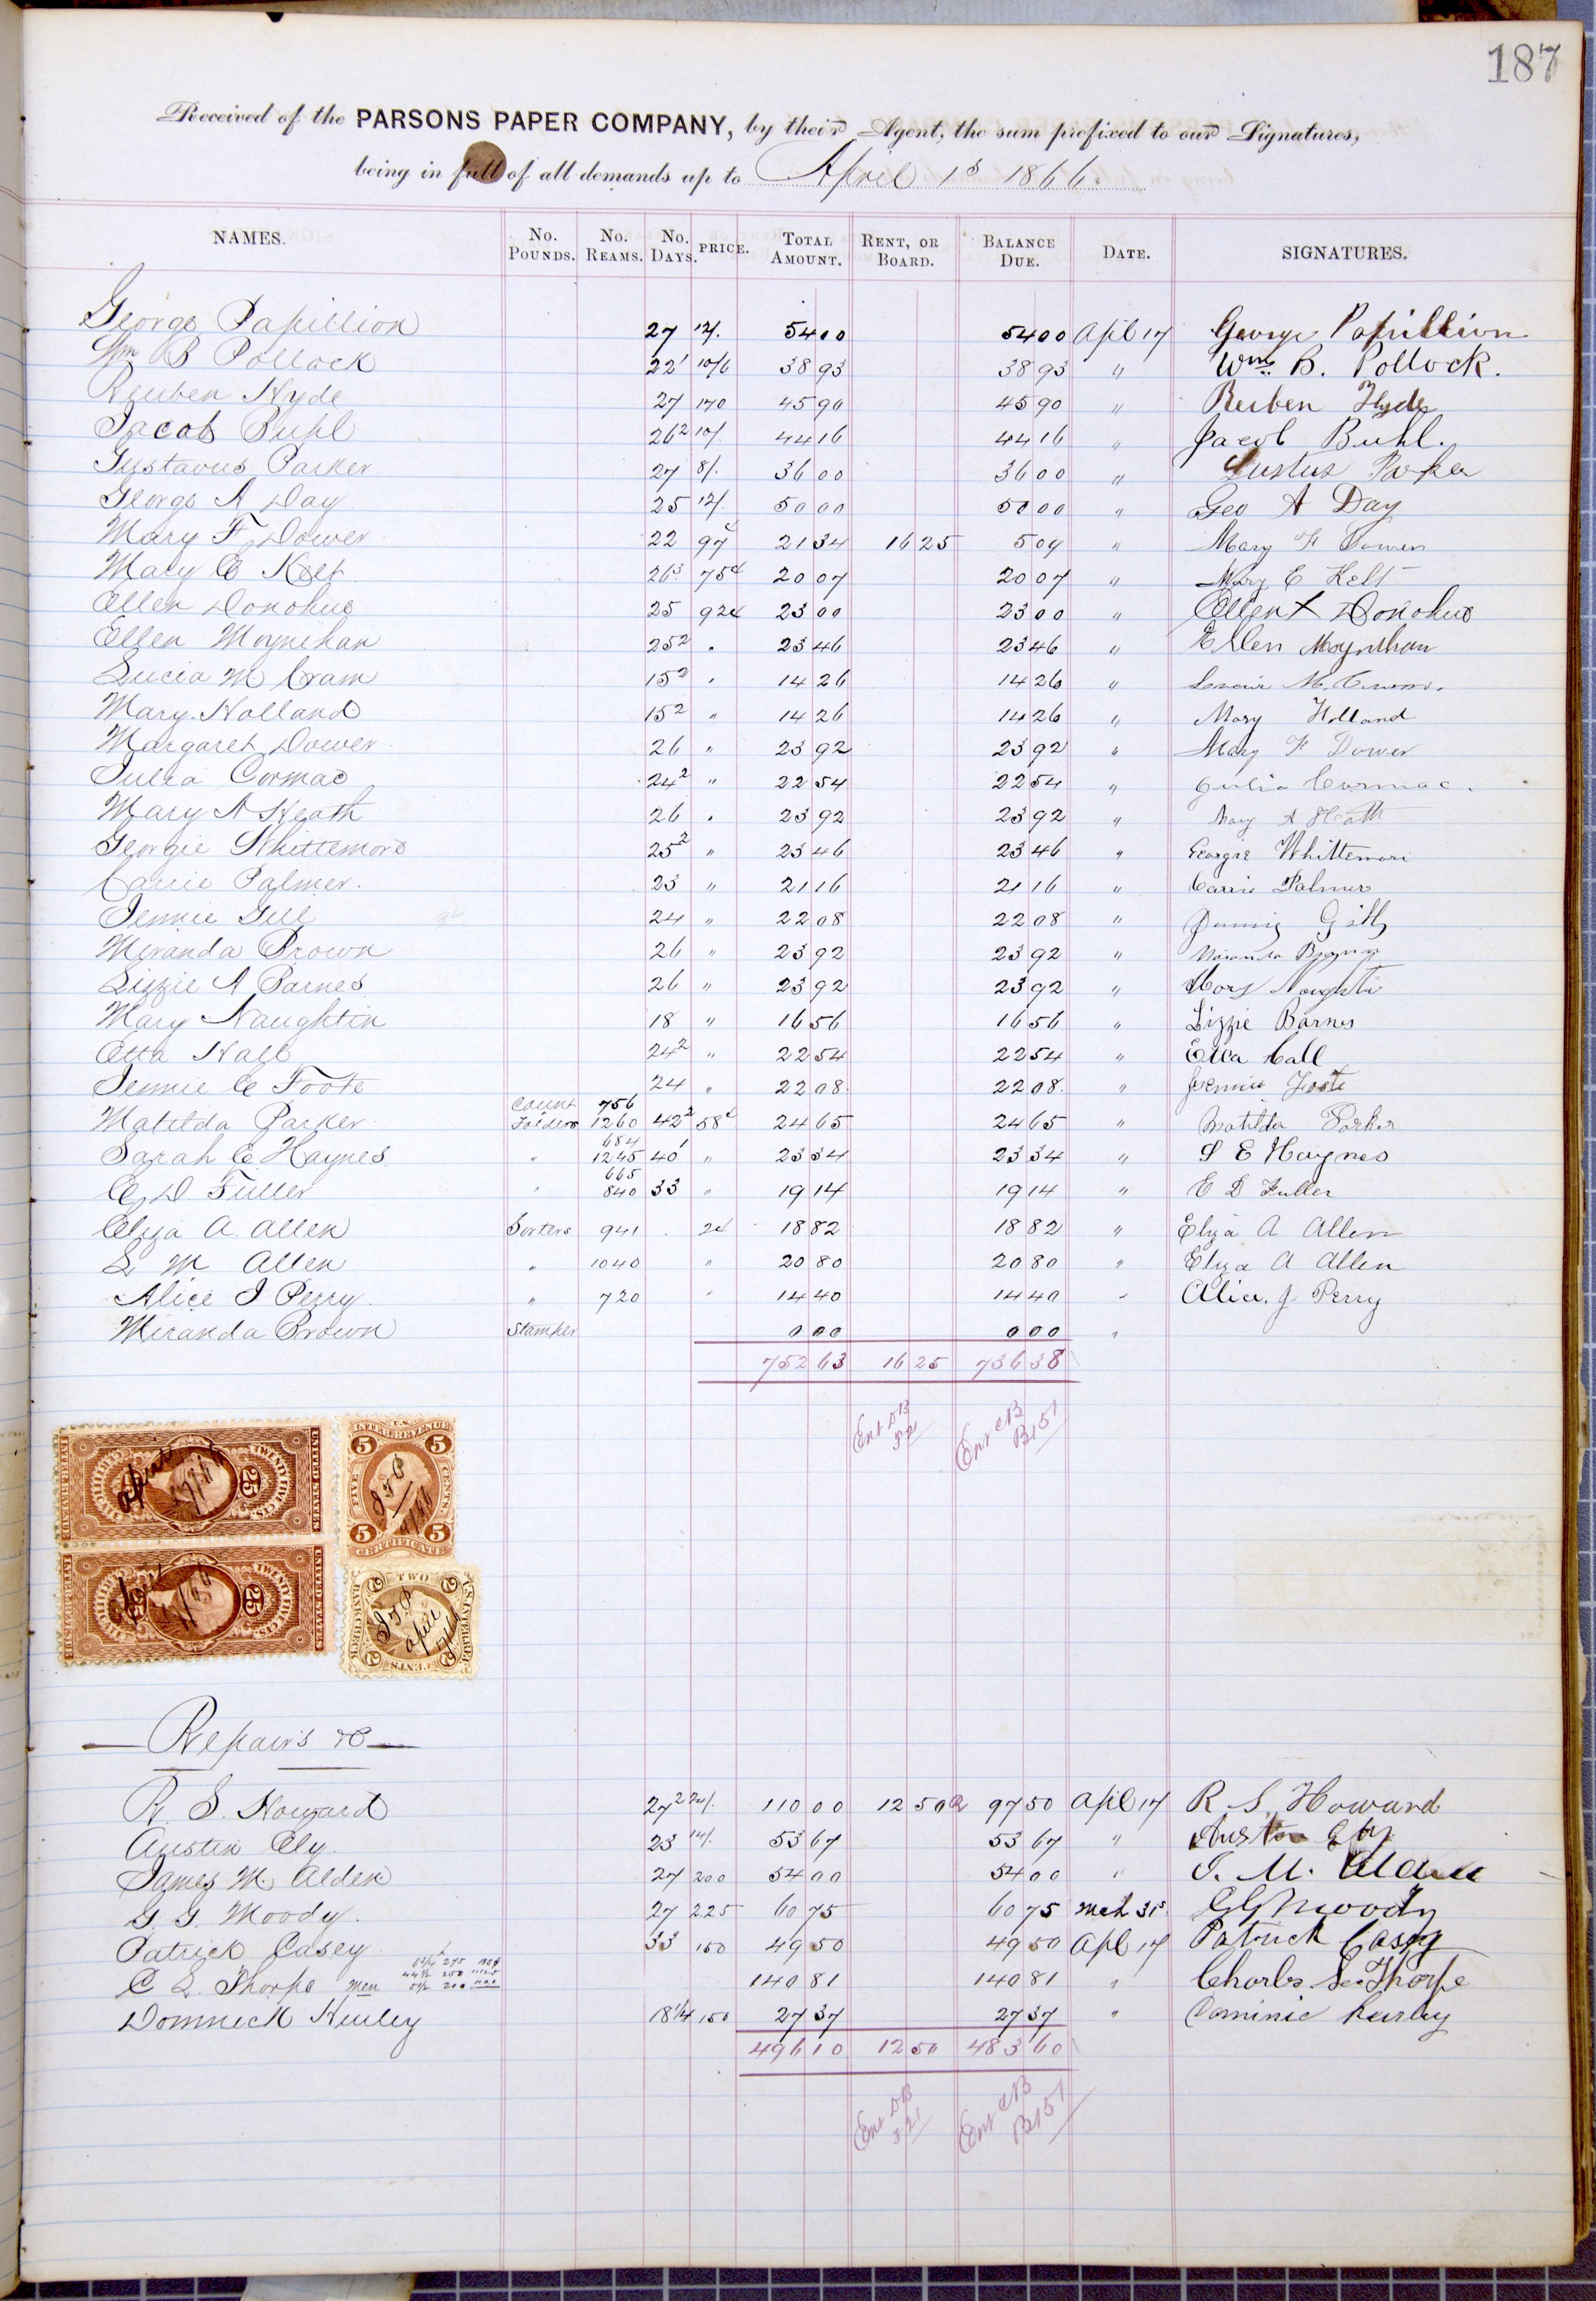 187
Received of the PARSONS PAPER COMPANY, by their Agent, the sum prefixed to our Signatures,
being in full of all demands up to April 1s 1866.
NAMES. No. Pounds. No. Reams. No. Days. PRICE. Total Amount. Rent, or Board. Balance Due. Date. SIGNATURES.
George Papillion 27 12/. 54 00 54 00 Apl 17 George Papillion
Wm B Pollock 22 1 10/6 38 93 38 93 " Wm. B. Pollock.
Reuben Hyde 27 170 45 90 45 90 " Reuben Hyde
Jacob Buhl 26 2 10/. 44 16 44 16 " Jacob Buhl.
Gustavus Parker 27 8/. 36 00 36 00 "
George A Day 25 12/. 50 00 50 00 " Geo A Day
Mary F Dower 22 97c 21 34 16 25 5 09 " Mary F Dower
Mary E Kelt 26 3 75c 20 07 20 07 " Mary E Kelt
Ellen Donohue 25 92c 23 00 23 00 " Ellen X Donohue
Ellen Moynehan 25 2 " 23 46 23 46 " Ellen Moynehan
Lucia M Cram 15 2 " 14 26 14 26 "
Mary Holland 15 2 " 14 26 14 26 " Mary Holland
Margaret Dower 26 " 23 92 23 92 " Mary F Dower
Julia Cormac 24 2 " 22 54 22 54 " Julia Cormac.
Mary A Heath 26 " 23 92 23 92 " Mary A Heath
Georgie Whittemore 25 2 " 23 46 23 46 " Georgie Whittemore
Carrie Palmer. 23 " 21 16 21 16 " Carrie Palmer
Jennie Gill 24 " 22 08 22 08 " Jennie Gill
Miranda Brown 26 " 23 92 23 92 " Miranda Brown
Lizzie A Barnes 26 " 23 92 23 92 " Mary Naughtin
Mary Naughtin 18 " 16 56 16 56 " Lizzie Barnes
Etta Hall 24 2 " 22 54 22 54 " Etta Hall
Jennie C Foote 24 " 22 08 22 08 " Jennie Foote
Count 756
Matilda Parker Folders 1260 42 2 58c 24 65 24 65 " Matilda Parker
684
Sarah E Haynes " 1245 40 1 " 23 34 23 34 " S E Haynes
665
E D Fuller " 840 33 " 19 14 19 14 " E D Fuller
Eliza A. Allen Sorters 941 2c 18 82 18 82 " Eliza A Allen
L M Allen " 1040 " 20 80 20 80 " Eliza A Allen
Alice J Perry " 720 " 14 40 14 40 " Alice. J. Perry
Miranda Brown Stamper 0 00 0 00 "
752 63 16 25 736 38
Ent DB 321
Ent CB B151
UNITED STATES TWENTY FIVE CTS. 25 INTER. REVENUE
U.S. INTER. REVENUE 5 FIVE CENTS. CERTIFICATE
UNITED STATES TWENTY FIVE CTS. 25 INTER. REVENUE
U.S. INTER. REV. 2 TWO CENTS BANK CHECK
Repairs &c
R. S. Howard 27 2 24/. 110 00 12 50 97 50 Apl 17 R. S. Howard
Austin Ely. 23 14/. 53 67 53 67 " Austin Ely
James M. Alden 27 200 54 00 54 00 " J. M. Alden
G. G. Moody. 27 225 60 75 60 75 Mch 31s GG Moody
Patrick Casey 33 150 49 50 49 50 Apl 17 Patrick Casey
C L Thorpe Men 140 81 140 81 " Charles L Thorpe
Domnick Hurley 18 1/4 150 27 37 27 37 " Dominic Hurley
496 10 12 50 483 60
Ent DB 321
Ent CB B151